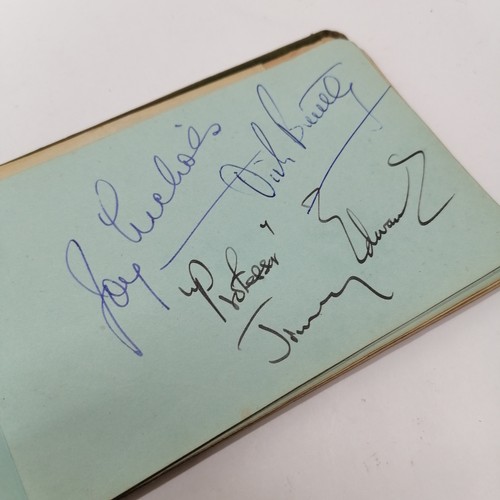 Joy Nichols
Dick Bentley
"Professor"
Jimmy Edwards